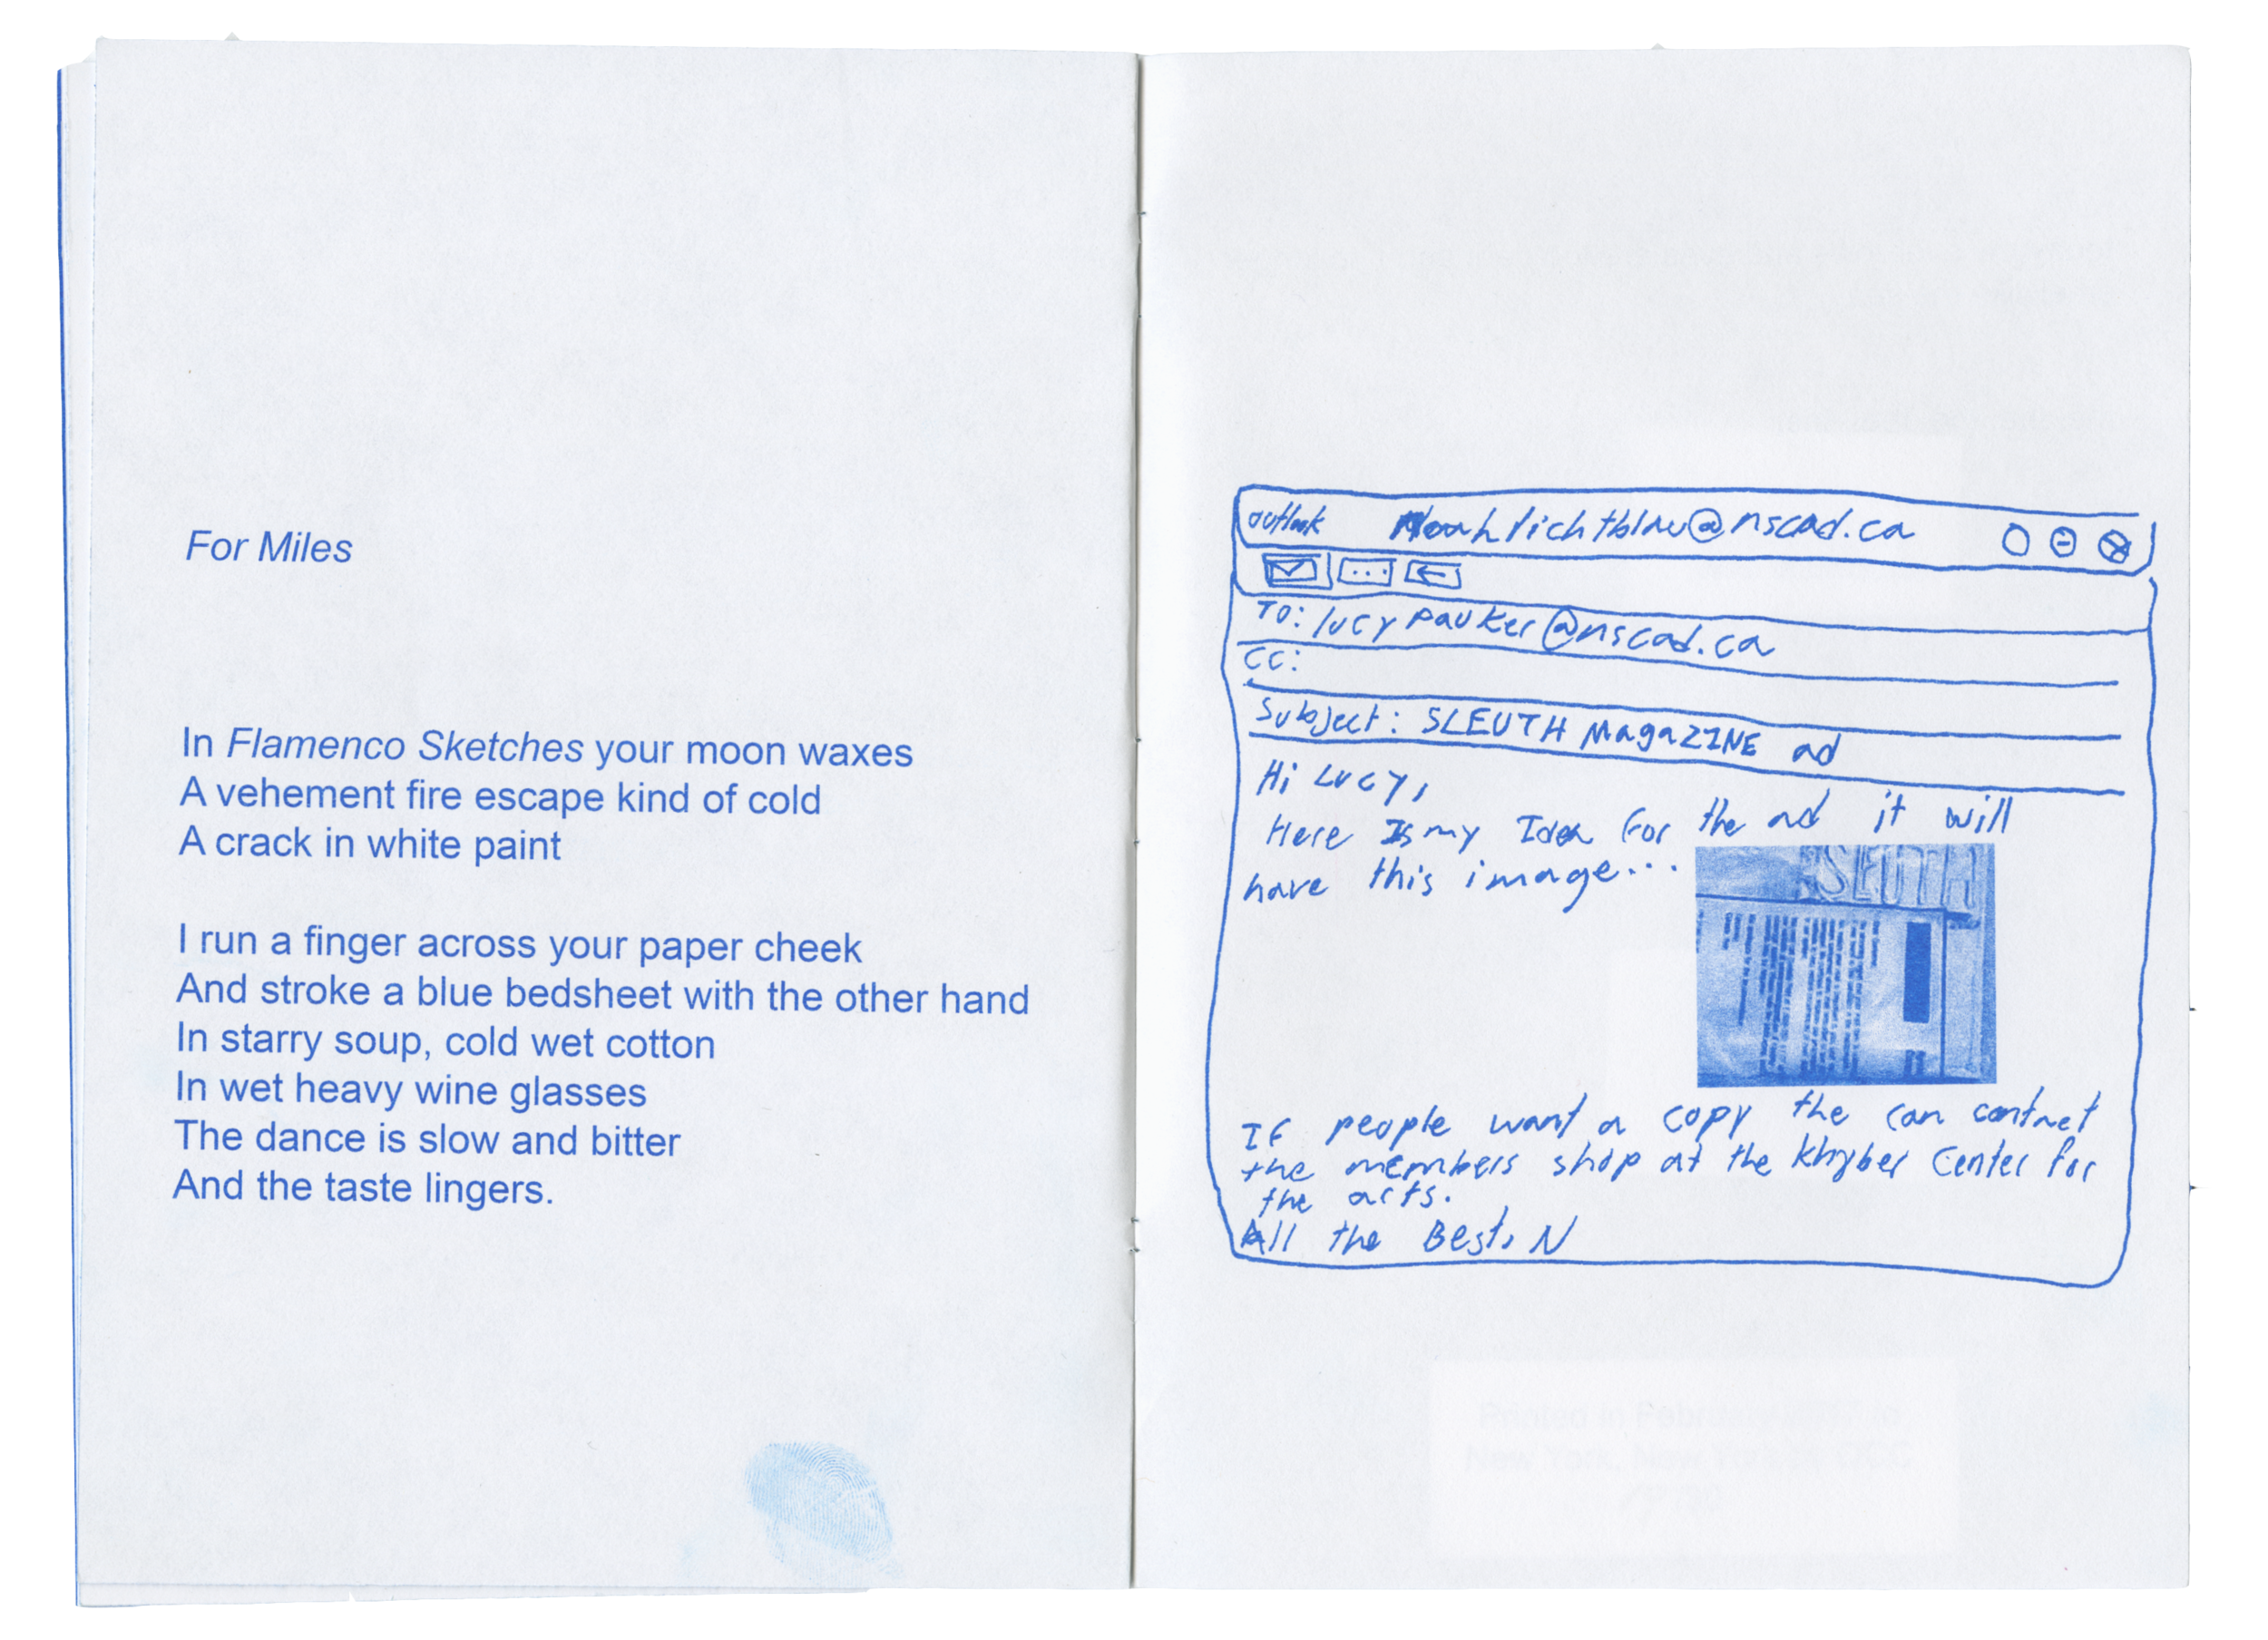 For Miles
In Flamenco Sketches your moon waxes
A vehement fire escape kind of cold
A crack in white paint
I run a finger across your paper cheek
And stroke a blue bedsheet with the other hand
In starry soup, cold wet cotton
In wet heavy wine glasses
The dance is slow and bitter
And the taste lingers.
outlook Noahlichtblau@nscad.ca
To: lucypauker@nscad.ca
CC:
Subject: SLEUTH MagaZINE ad
Hi Lucy,
Here Is my Idea for the ad it will
have this image...
If people want a copy the can contact
the members shop at the khyber Center for
the arts.
All the Best, N
Printed in February
New York, New